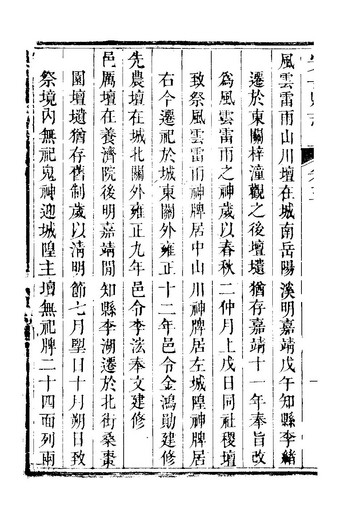 風雲雷雨山川壇在城南岳陽溪明嘉靖戊午知縣李緒
遷於東關梓潼觀之後壇壝猶存嘉靖十一年奉旨改
為風雲雷雨之神歲以春秋二仲月上戊日同社稷壇
致祭風雲雷雨神牌居中山川神牌居左城隍神牌居
右今遷祀於城東關外雍正十二年邑令金鴻勛建修
先農壇在城北關外雍正九年邑令李泫奉文建修
邑厲壇在養濟院後明嘉靖間知縣李湖遷於北街桑棗
園壇壝猶存舊制歲以清明節七月望日十月朔日致
祭境內無祀鬼神迎城隍主壇無祀牌二十四面列兩